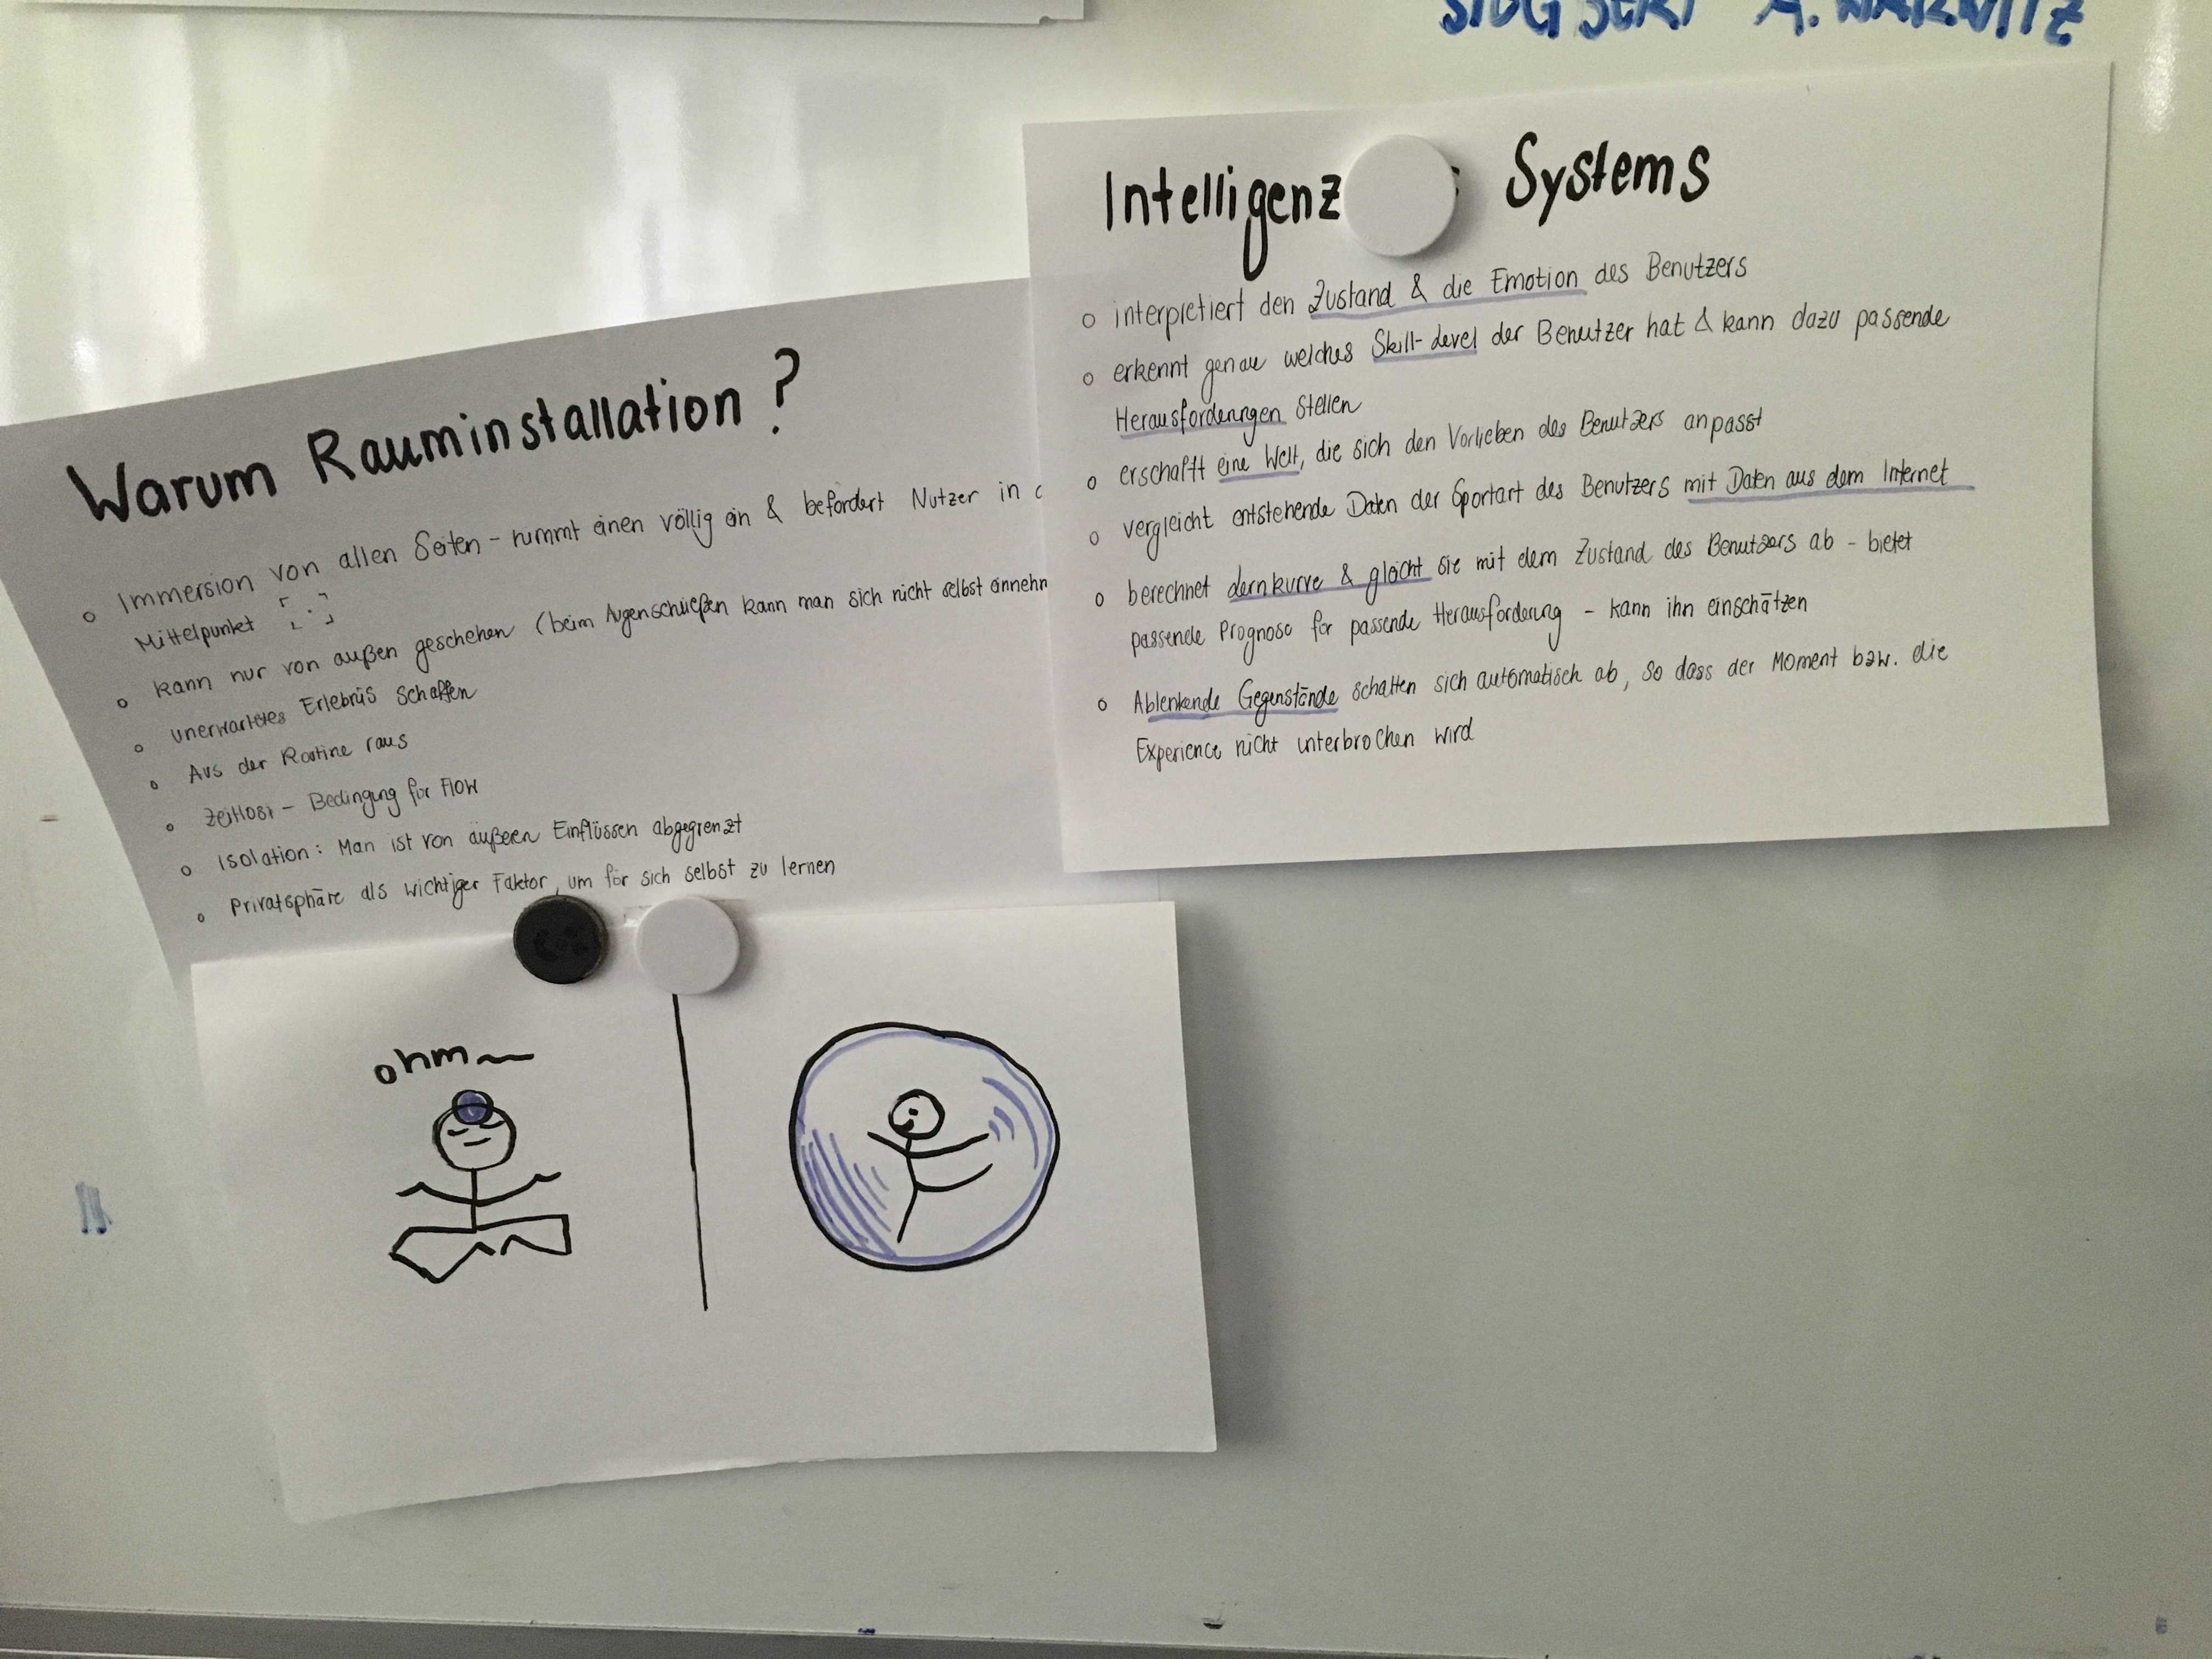 Warum Rauminstallation ?
o Immersion von allen Seiten - nimmt einen völlig ein & befördert Nutzer in
Mittelpunkt
o kann nur von außen geschehen (beim Augenschließen kann man sich nicht selbst einnehm
o unerwartetes Erlebnis schaffen
o Aus der Routine raus
o Bedingung für Flow
o Isolation: Man ist von äußeren Einflüssen abgegrenzt
o Privatsphäre als wichtiger Faktor, um für sich selbst zu lernen
Intelligenz Systems
o interpretiert den Zustand & die Emotion des Benutzers
o erkennt genau welches Skill-Level der Benutzer hat & kann dazu passende
Herausforderungen stellen
o erschafft eine Welt, die sich den Vorlieben des Benutzers anpasst
o vergleicht entstehende Daten der Sportart des Benutzers mit Daten aus dem Internet
o berechnet Lernkurve & gleicht sie mit dem Zustand des Benutzers ab - bietet
passende Prognose für passende Herausforderung - kann ihn einschätzen
o Ablenkende Gegenstände schalten sich automatisch ab, so dass der Moment bzw. die
Experience nicht unterbrochen wird
ohm